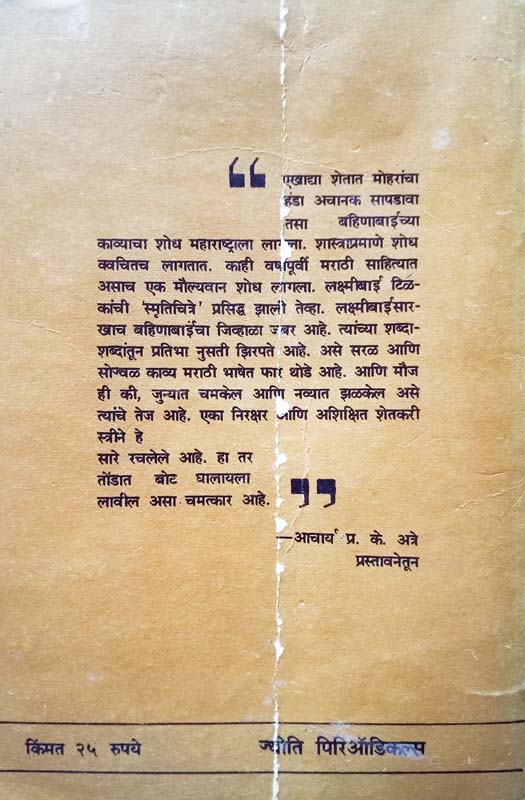 “ एखाद्या शेतात मोहरांचा
हंडा अचानक सापडावा
तसा बहिणाबाईच्या
काव्याचा शोध महाराष्ट्राला लागला. शास्त्राप्रमाणे शोध
क्वचितच लागतात. काही वर्षापूर्वी मराठी साहित्यात
असाच एक मौल्यवान शोध लागला. लक्ष्मीबाई टिळ-
कांची ‘स्मृतिचित्रे’ प्रसिद्ध झाली तेव्हा. लक्ष्मीबाईसार-
खाच बहिणाबाईंचा जिव्हाळा जबर आहे. त्यांच्या शब्दा-
शब्दांतून प्रतिभा नुसती झिरपते आहे. असे सरळ आणि
सोज्वळ काव्य मराठी भाषेत फार थोडे आहे. आणि मौज
ही की, जुन्यात चमकेल आणि नव्यात झळकेल असे
त्यांचे तेज आहे. एका निरक्षर आणि अशिक्षित शेतकरी
स्त्रीने हे
सारे रचलेले आहे. हा तर
तोंडात बोट घालायला
लावील असा चमत्कार आहे. ”
—आचार्य प्र. के. अत्रे
प्रस्तावनेतून
किंमत २५ रुपये ज्योति पिरिऑडिकल्स